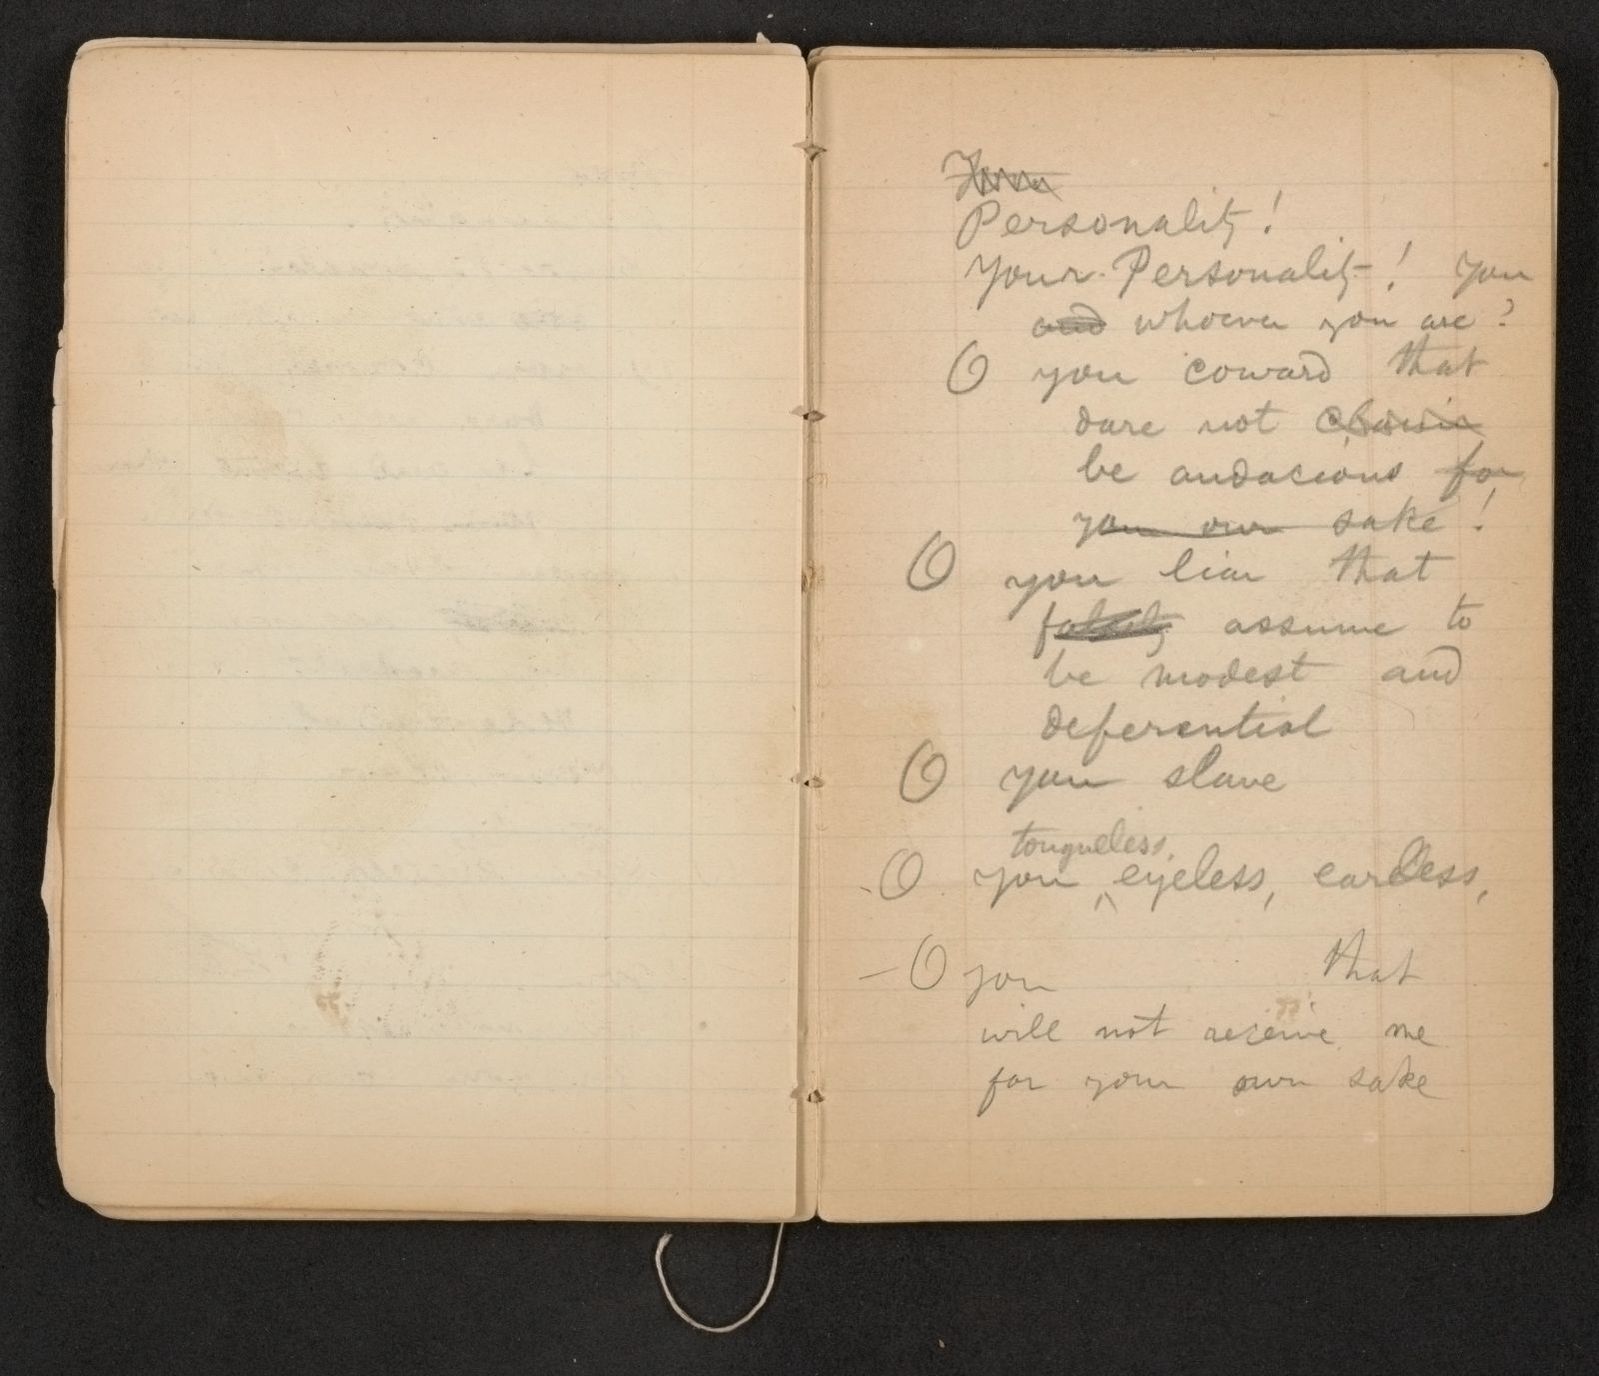 Personality!
Your Personality! You
and whoever you are?
O you coward that
dare not
be audacious for
your own sake!
O you liar that
falsely assume to
be modest and
deferential
O you slave
tongueless,
-O you ^ eyeless, earless,
– O you that
will not receive me
for your own sake